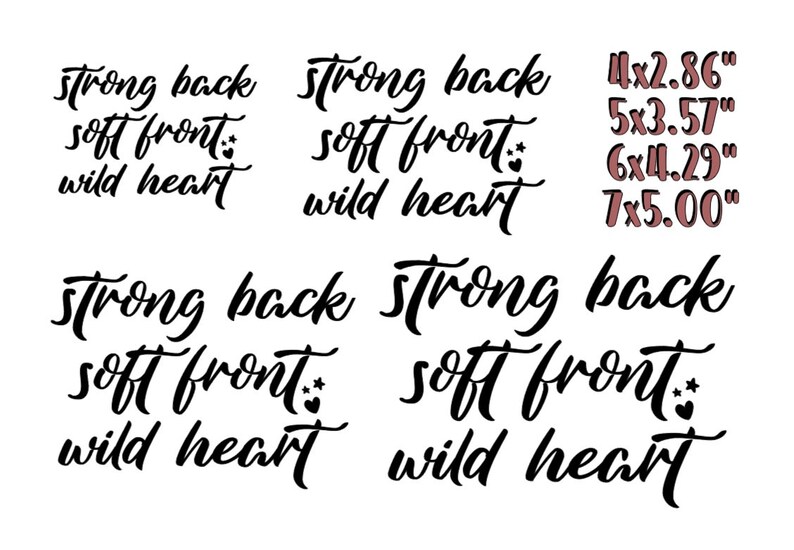 strong back
soft front
wild heart
strong back
soft front
wild heart
4x2.86"
5x3.57"
6x4.29"
7x5.00"
strong back
soft front
wild heart
strong back
soft front
wild heart